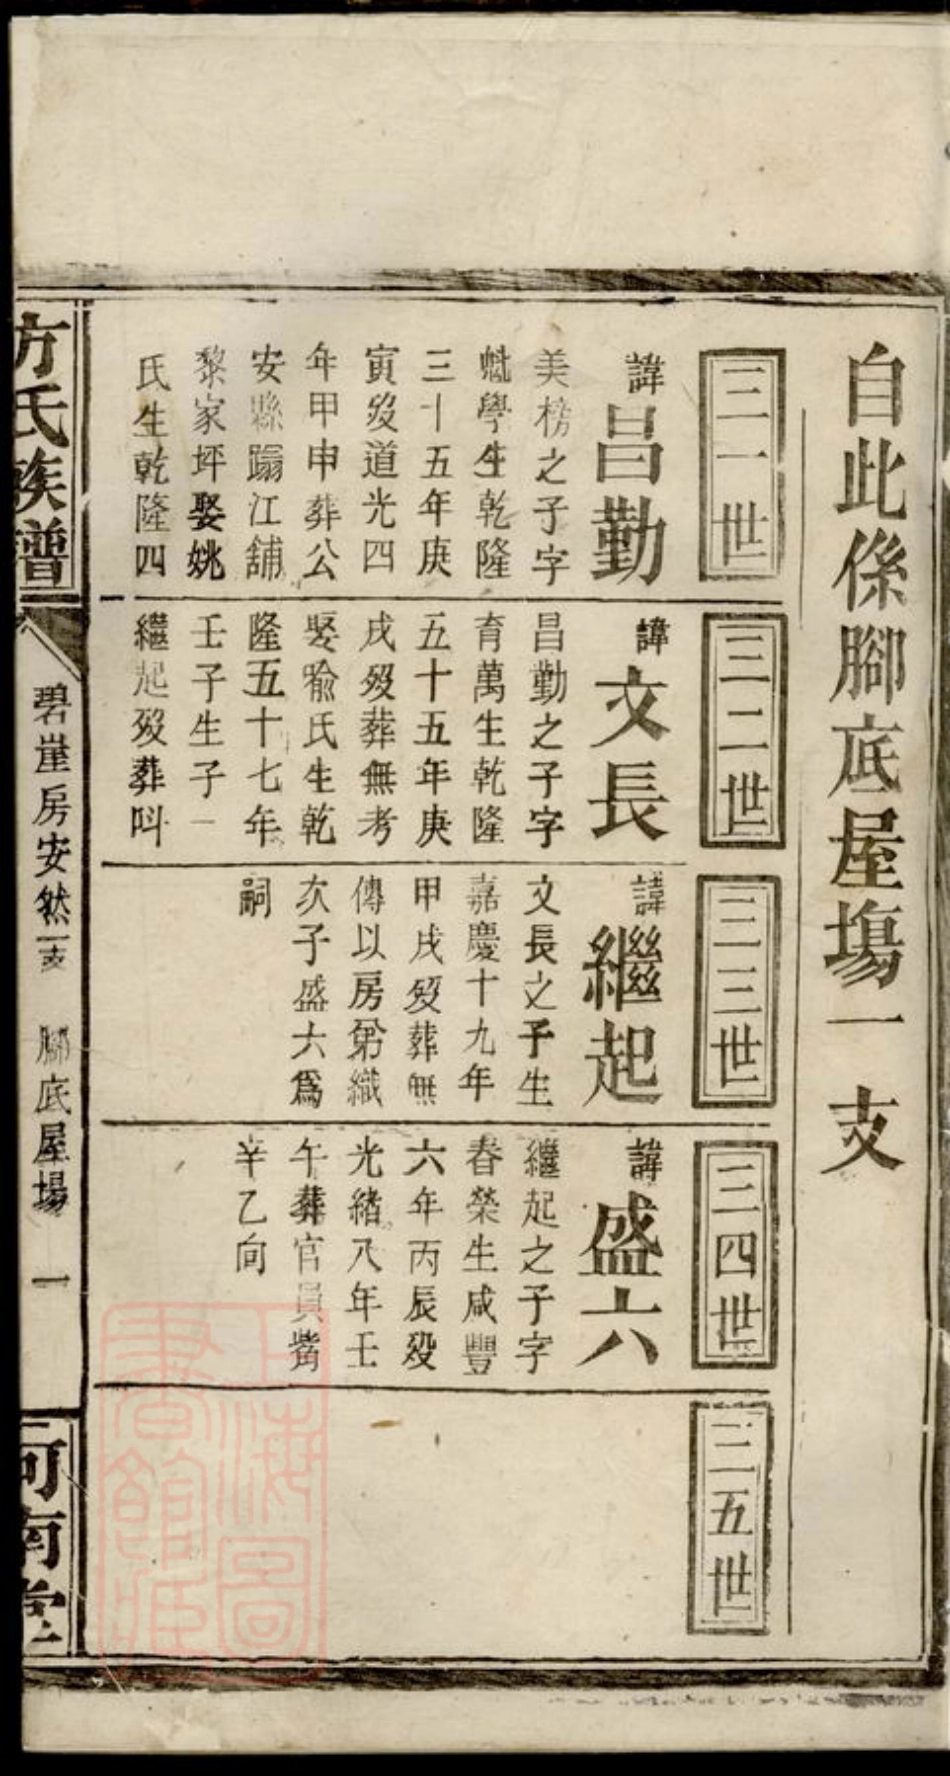 自此係腳底屋塲一支
三一世
諱昌勤
美榜之子字
魁學生乾隆
三十五年庚
寅歿道光四
年甲申葬公
安縣蹋江舖
黎家坪娶姚
氏生乾隆四
三二世
諱文長
昌勤之子字
育萬生乾隆
五十五年庚
戌歿葬無考
娶喩氏生乾
隆五十七年
壬子生子一
繼起歿葬呌
三三世
諱繼起
文長之子生
嘉慶十九年
甲戌歿葬無
傳以房弟織
次子盛六爲
嗣
三四世
諱盛六
繼起之子字
春榮生咸豐
六年丙辰歿
光緒八年壬
午葬官員嘴
辛乙向
三五世
方氏族譜
碧崖房安然一支 腳底屋場 一
河南堂
上海圖書館藏